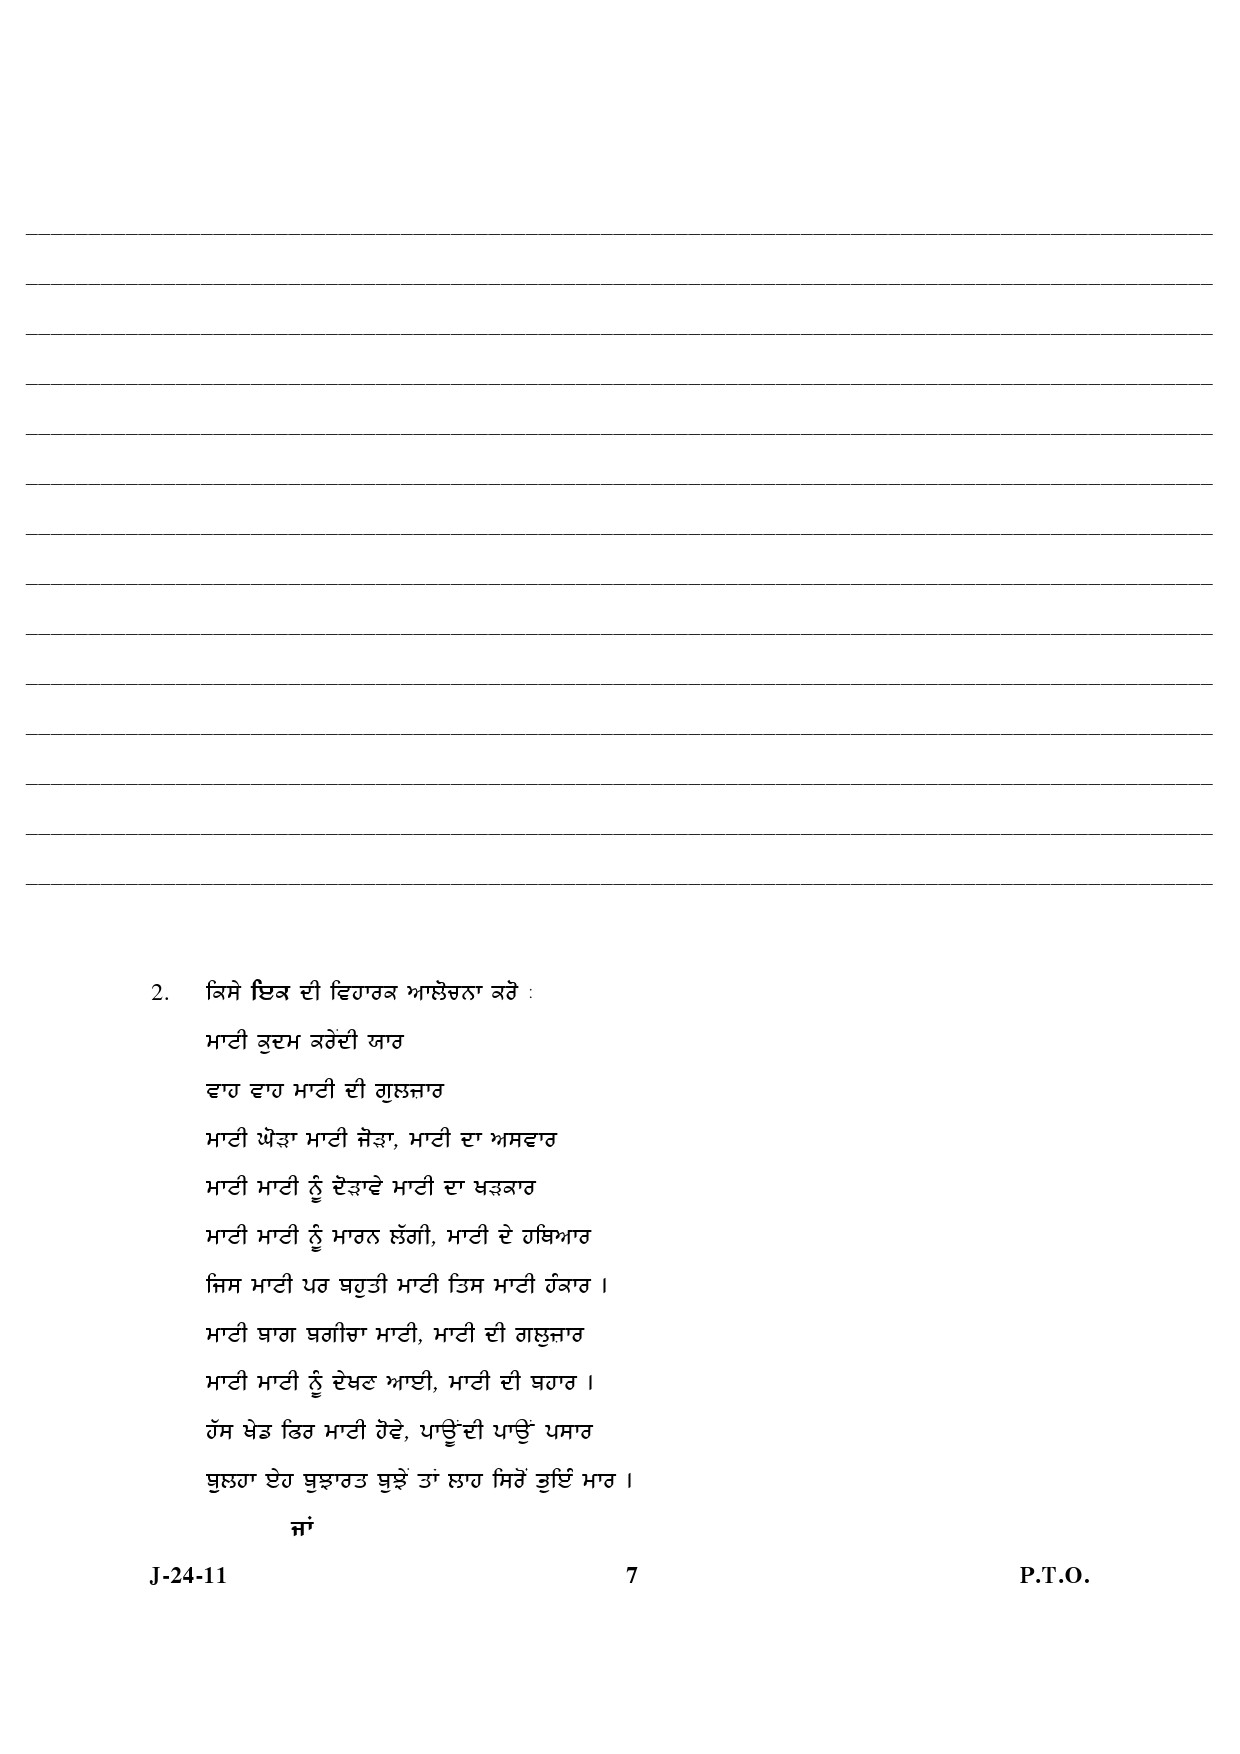 2. ਕਿਸੇ ਇਕ ਦੀ ਵਿਹਾਰਕ ਆਲੋਚਨਾ ਕਰੋ :
ਮਾਟੀ ਕੁਦਮ ਕਰੇਂਦੀ ਯਾਰ
ਵਾਹ ਵਾਹ ਮਾਟੀ ਦੀ ਗੁਲਜ਼ਾਰ
ਮਾਟੀ ਘੋੜਾ ਮਾਟੀ ਜੋੜਾ, ਮਾਟੀ ਦਾ ਅਸਵਾਰ
ਮਾਟੀ ਮਾਟੀ ਨੂੰ ਦੋੜਾਵੇ ਮਾਟੀ ਦਾ ਖੜਕਾਰ
ਮਾਟੀ ਮਾਟੀ ਨੂੰ ਮਾਰਨ ਲੱਗੀ, ਮਾਟੀ ਦੇ ਹਥਿਆਰ
ਜਿਸ ਮਾਟੀ ਪਰ ਬਹੁਤੀ ਮਾਟੀ ਤਿਸ ਮਾਟੀ ਹੰਕਾਰ ।
ਮਾਟੀ ਬਾਗ ਬਗੀਚਾ ਮਾਟੀ, ਮਾਟੀ ਦੀ ਗਲੁਜ਼ਾਰ
ਮਾਟੀ ਮਾਟੀ ਨੂੰ ਦੇਖਣ ਆਈ, ਮਾਟੀ ਦੀ ਬਹਾਰ ।
ਹੱਸ ਖੇਡ ਫਿਰ ਮਾਟੀ ਹੋਵੇ, ਪਾਊਂਦੀ ਪਾਉਂ ਪਸਾਰ
ਬੁਲਹਾ ਏਹ ਬੁਝਾਰਤ ਬੁਝੇਂ ਤਾਂ ਲਾਹ ਸਿਰੋਂ ਭੁਇੰ ਮਾਰ ।
ਜਾਂ
J-24-11 7 P.T.O.